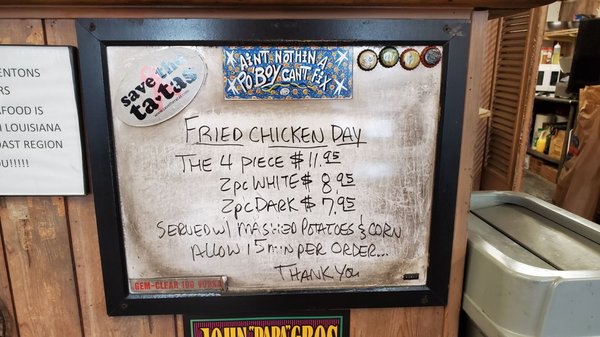 ENTONS
RS
AFOOD IS
LOUISIANA
OAST REGION
U!!!!!
save the
ta-tas
AIN'T NOTHIN A
PO'BOY CAN'T FIX
FRIED CHICKEN DAY
THE 4 PIECE $11.95
2pc WHITE $8.95
2pc DARK $7.95
SERVED W/ MASHED POTATOES & CORN
ALLOW 15 min PER ORDER...
THANK YOU
GEM-CLEAR 100 VODKA
JOHN "PAPA" GROS